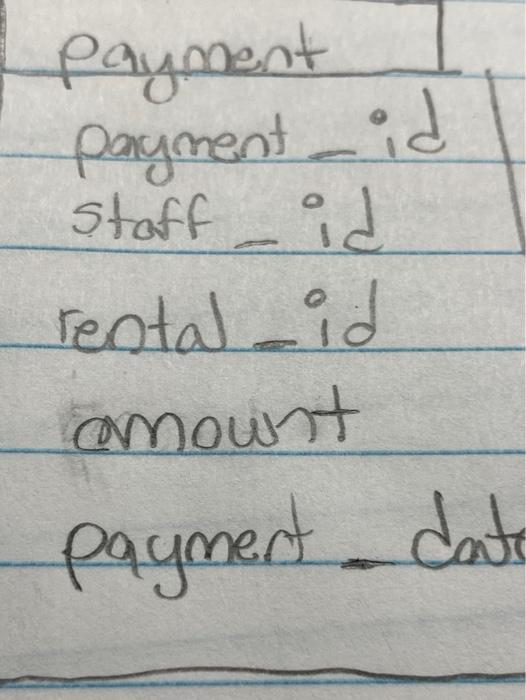 payment
payment_id
staff_id
rental_id
amount
payment_date